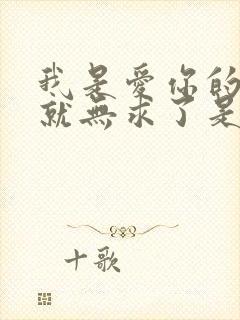 我是愛你的
就無求了是
十歌